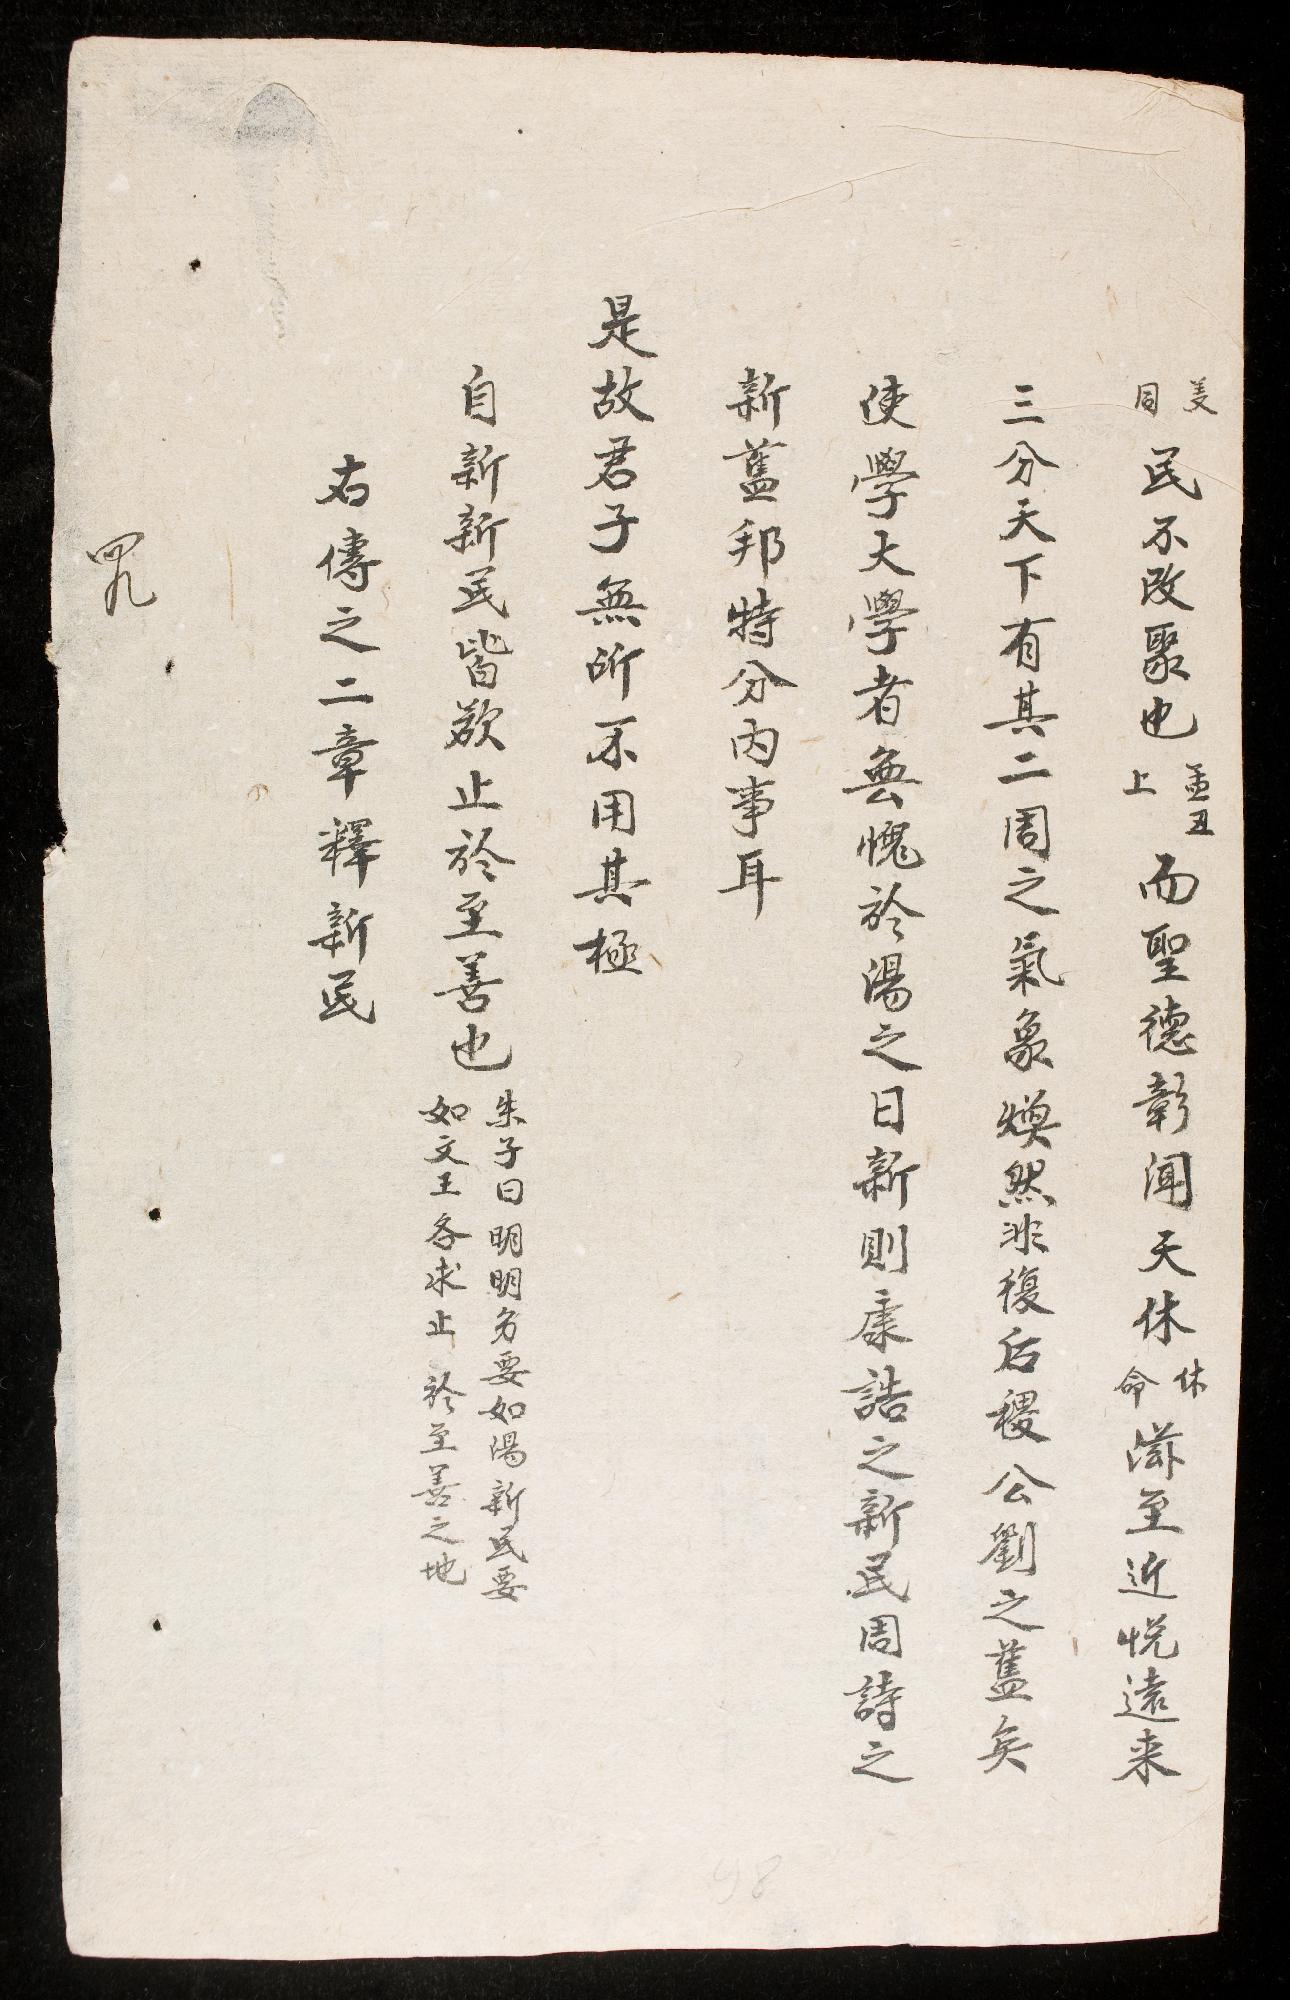 美同民不改聚也孟丑上而聖德彰闻天休休命滋至近悦遠来
三分天下有其二周之氣象煥然非復后稷公劉之舊矣
使學大學者無愧於湯之日新則康誥之新民周詩之
新舊邦特分内事耳
是故君子無所不用其極
自新新民皆欲止於至善也朱子曰明明多要如湯新民要如文王各求止於至善之地
右傳之二章釋新民
四九
98